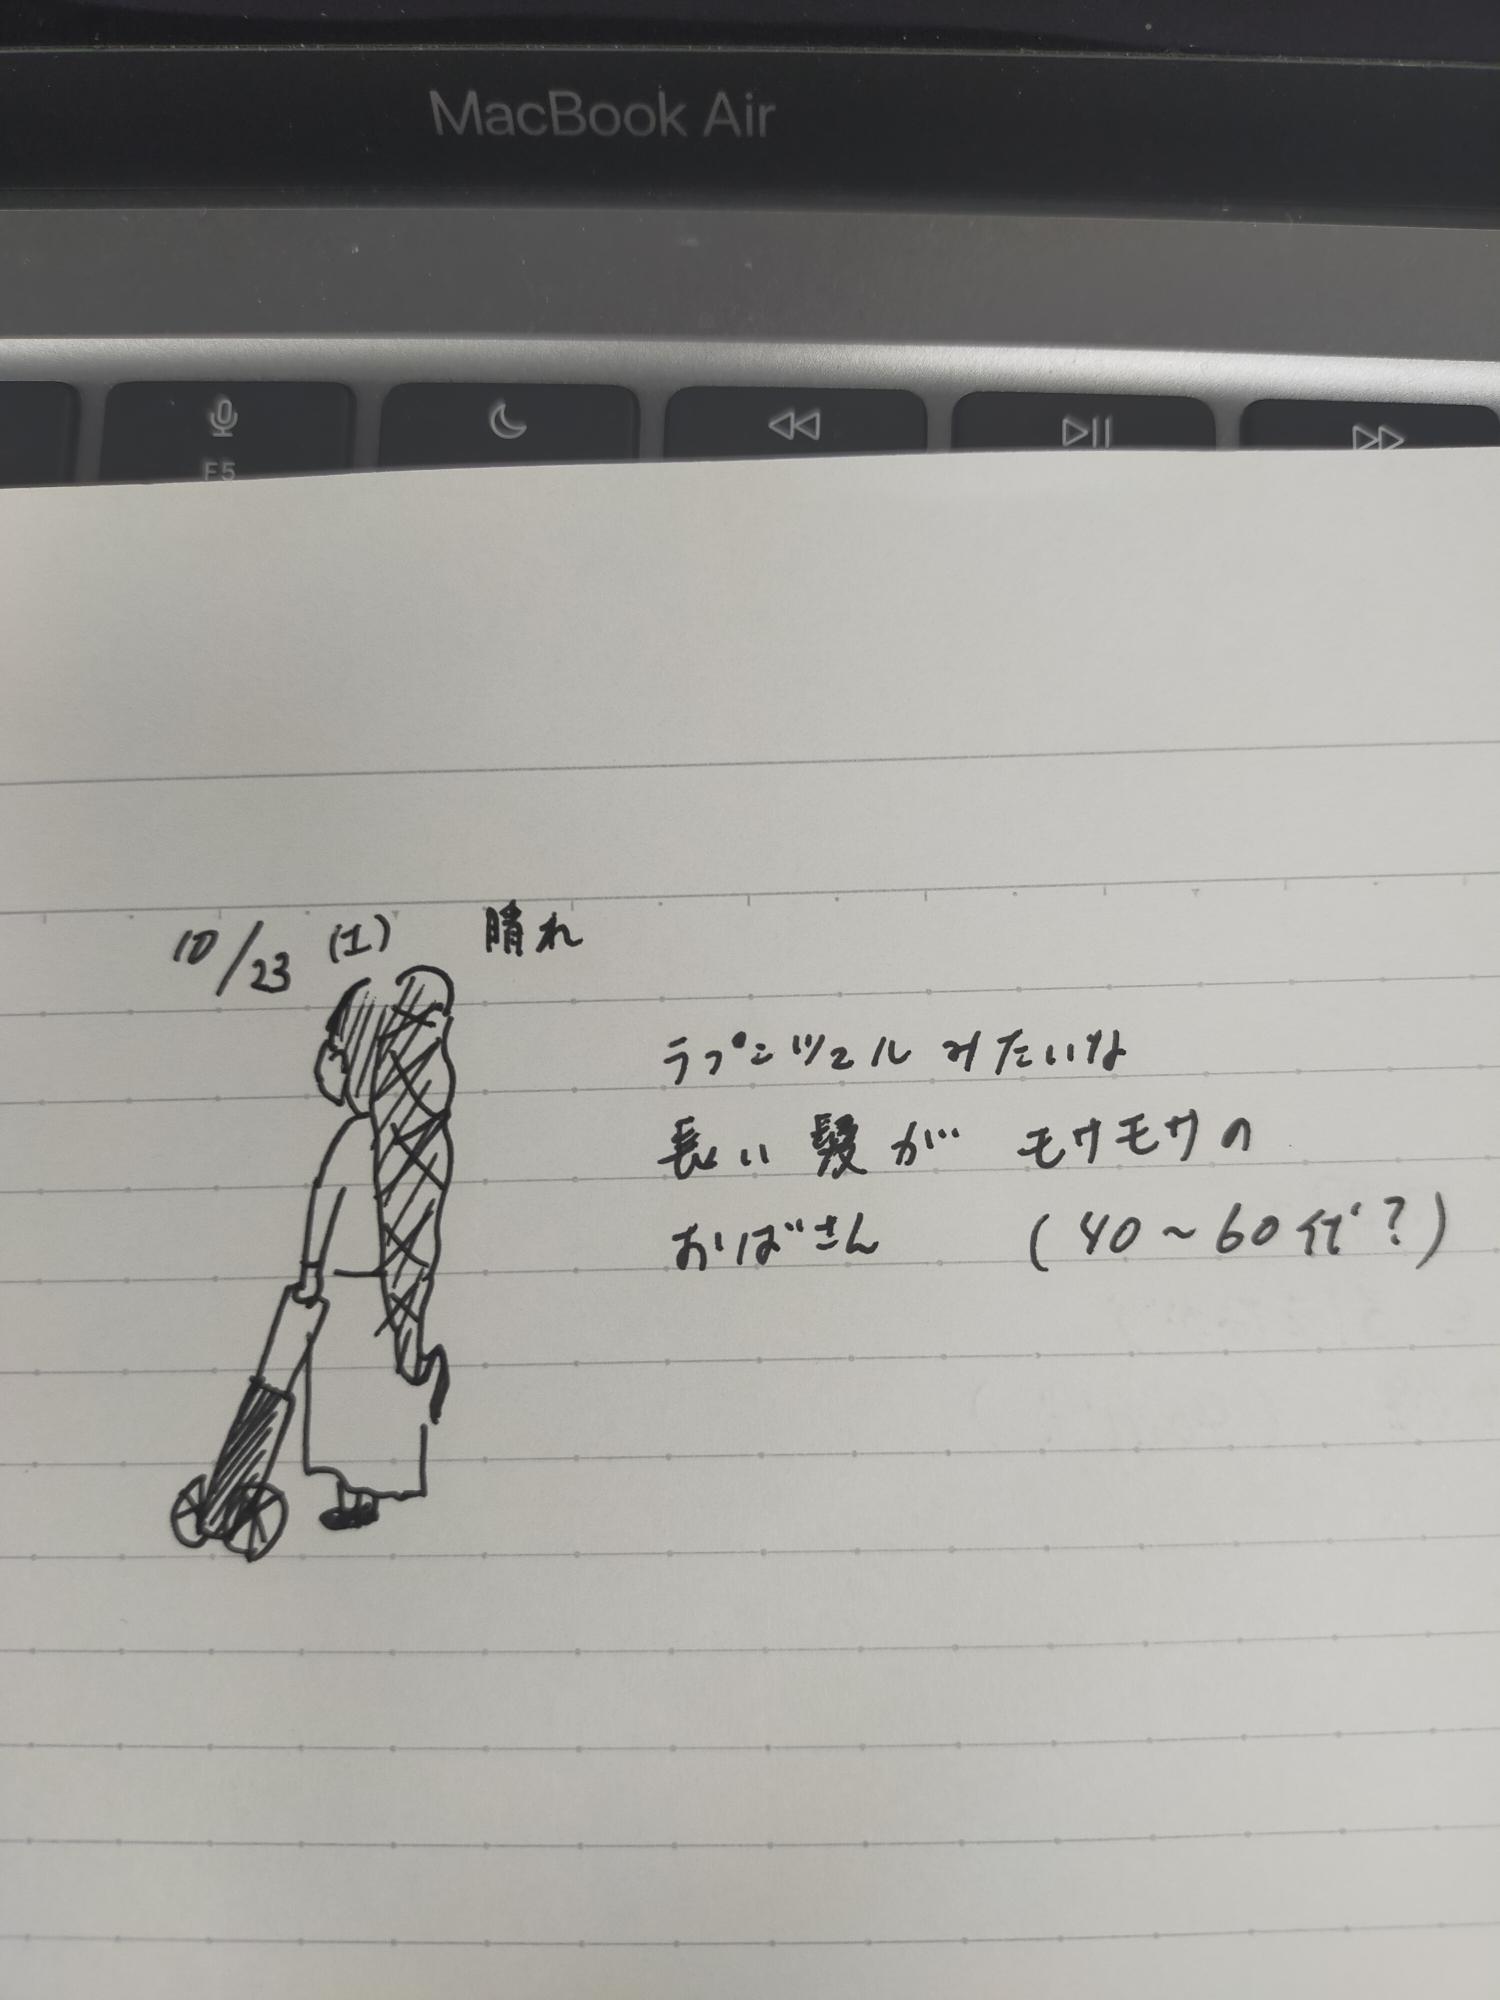 MacBook Air
F5
10/23 (1) 晴れ
ラプンツェルみたいな
長い髪が モサモサの
おばさん (40~60代?)